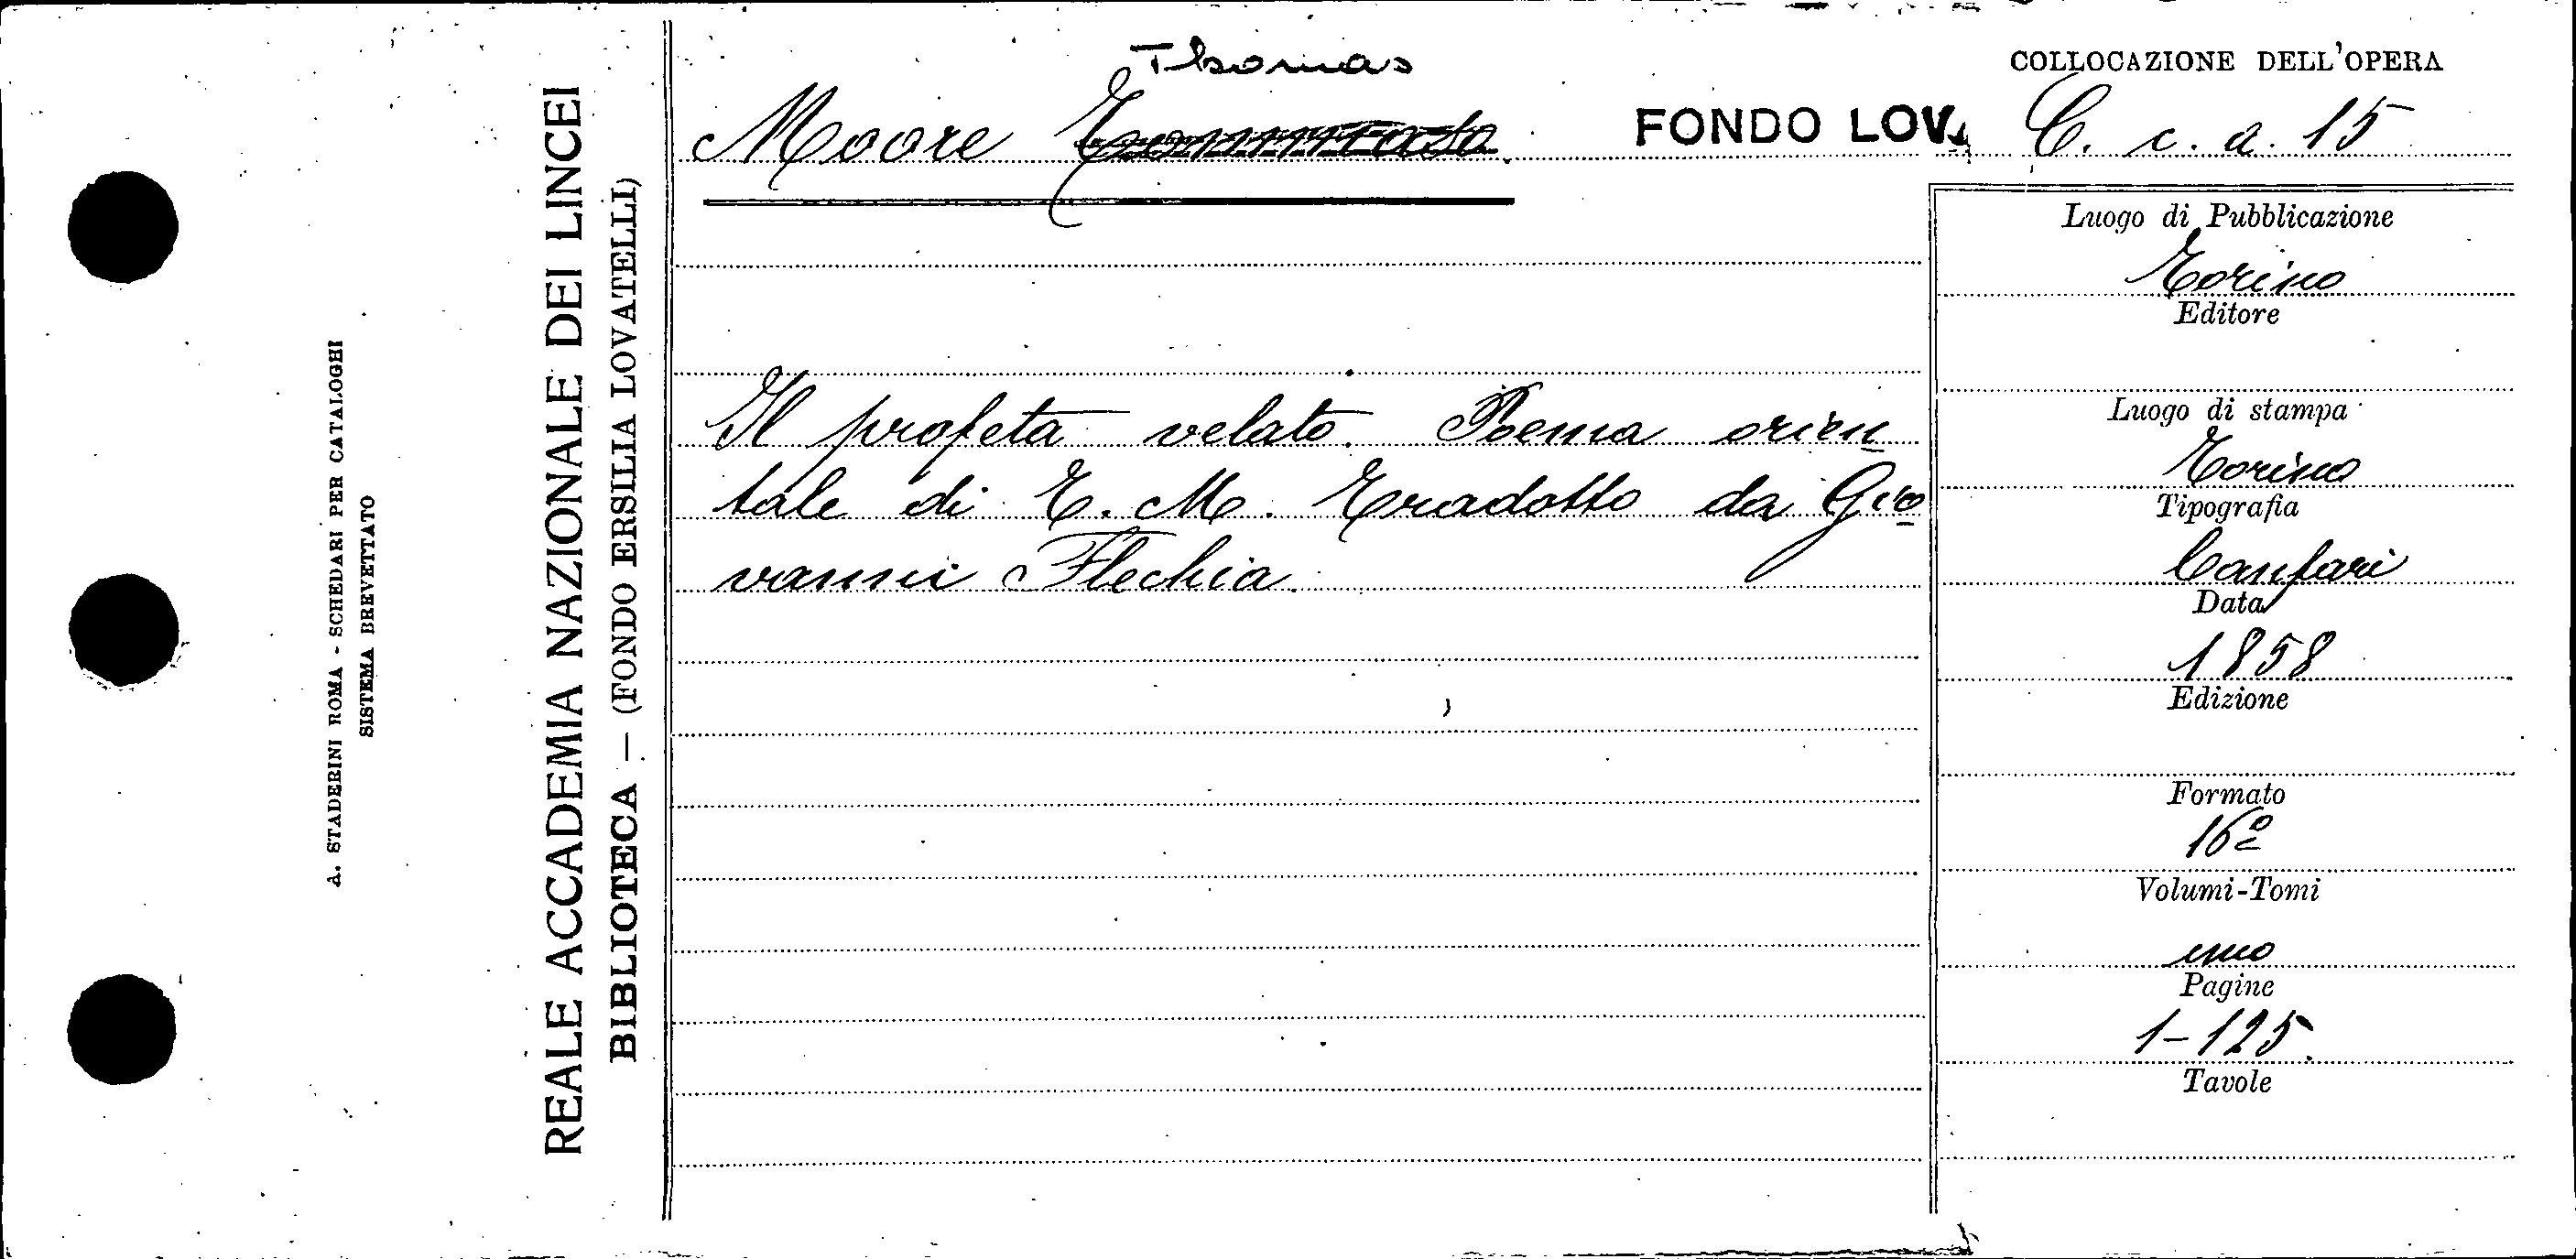 A. STADERINI ROMA - SCHEDARI PER CATALOGHI
SISTEMA BREVETTATO
REALE ACCADEMIA NAZIONALE DEI LINCEI
BIBLIOTECA — (FONDO ERSILIA LOVATELLI)
Thomas
Moore Tommaso.
FONDO LOV.
COLLOCAZIONE DELL'OPERA
C. c. a. 15
Il profeta velato. Poema orien
tale di T. M. Tradotto da Gio
vanni Flechia.
Luogo di Pubblicazione
Torino
Editore
Luogo di stampa
Torino
Tipografia
Canfari
Data
1858
Edizione
Formato
16º
Volumi-Tomi
uno
Pagine
1-125.
Tavole